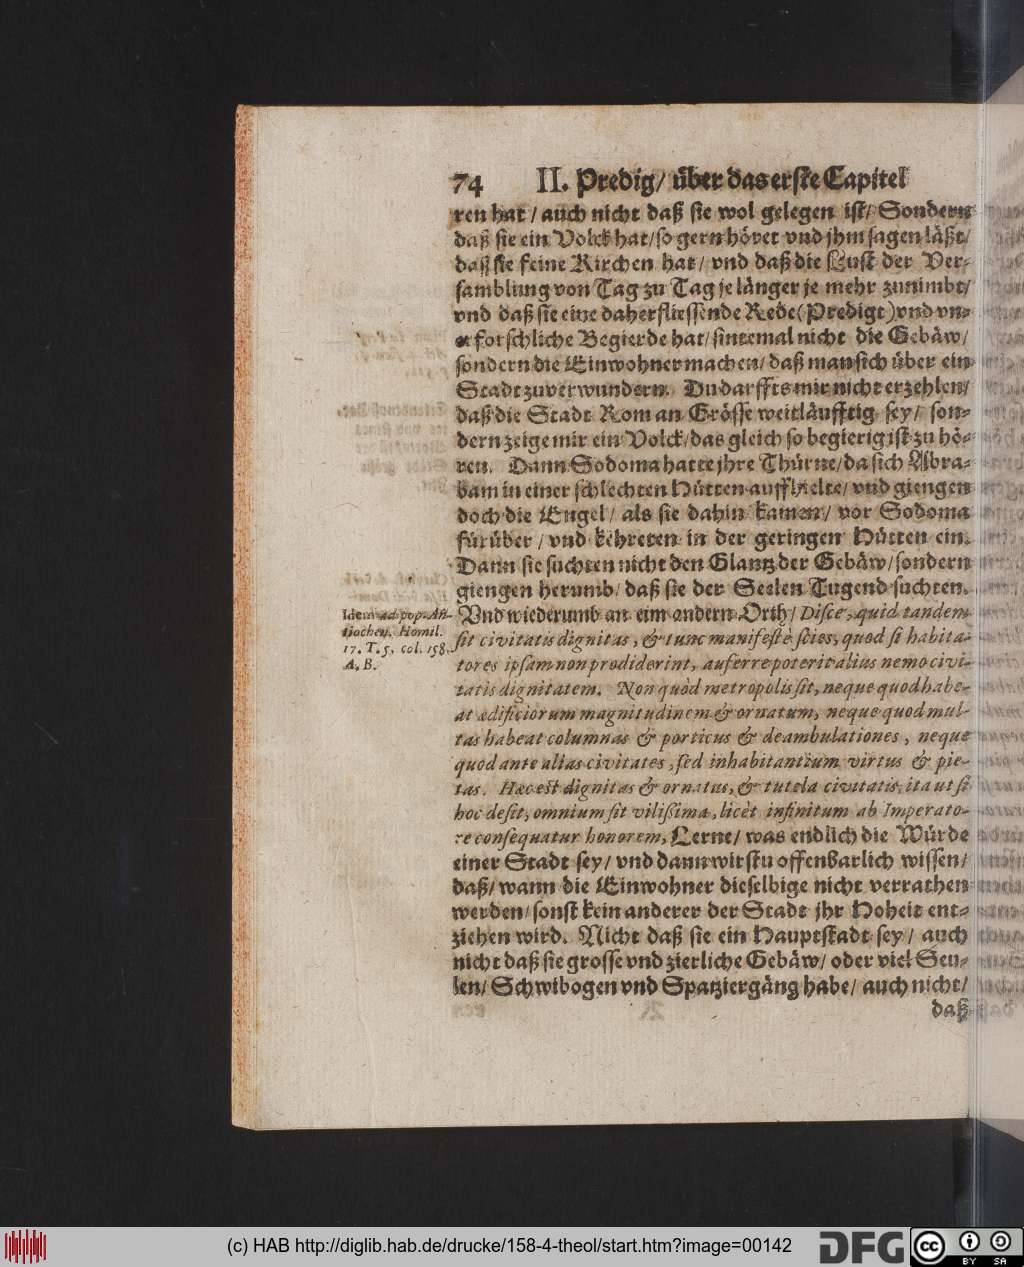 74 II. Predig/ über das erste Capitel
ren hat/ auch nicht daß sie wol gelegen ist/ Sondern
daß sie ein Volck hat/ so gern höret vnd jhm sagen läßt/
daß sie feine Kirchen hat/ vnd daß die Lust der Ver-
samblung von Tag zu Tag je länger je mehr zunimbt/
vnd daß sie eine daherfliessende Rede (Predigt) vnd vn-
erforschliche Begierde hat/ sintemal nicht die Gebäw/
sondern die Einwohner machen/ daß man sich über ein
Stadt zuverwundern. Du darffts mir nicht erzehlen/
daß die Stadt Rom an Grösse weitläufftig sey/ son-
dern zeige mir ein Volck/ das gleich so begierig ist zu hö-
ren. Dann Sodoma hatte jhre Thürne/ da sich Abra-
ham in einer schlechten Hütten auffhielte/ vnd giengen
doch die Engel/ als sie dahin kamen/ vor Sodoma
fürüber/ vnd kehreten in der geringen Hütten ein.
Dann sie suchten nicht den Glantz der Gebäw/ sondern
giengen herumb/ daß sie der Seelen Tugend suchten.
Idem ad pop. An-
tiochen. Homil.
17. T. 5. col. 158.
A, B.
Vnd wiederumb an eim andern Orth/ Disce, quid tandem
sit civitatis dignitas, & tunc manifestè scies, quod si habita-
tores ipsam non prodiderint, auferre poterit alius nemo civi-
tatis dignitatem. Non quòd metropolis sit, neque quod habe-
at ædificiorum magnitudinem & ornatum, neque quod mul-
tas habeat columnas & porticus & deambulationes, neque
quod ante alias civitates, sed inhabitantium virtus & pie-
tas. Hæc est dignitas & ornatus, & tutela civitatis, ita ut si
hoc desit, omnium sit vilißima, licèt infinitum ab Imperato-
re consequatur honorem, Lerne/ was endlich die Würde
einer Stadt sey/ vnd dann wirstu offenbarlich wissen/
daß/ wann die Einwohner dieselbige nicht verrathen
werden/ sonst kein anderer der Stadt jhr Hoheit ent-
ziehen wird. Nicht daß sie ein Hauptstadt sey/ auch
nicht daß sie grosse vnd zierliche Gebäw/ oder viel Seu-
len/ Schwibogen vnd Spatziergäng habe/ auch nicht/
daß
(c) HAB http://diglib.hab.de/drucke/158-4-theol/start.htm?image=00142
DFG
cc BY SA